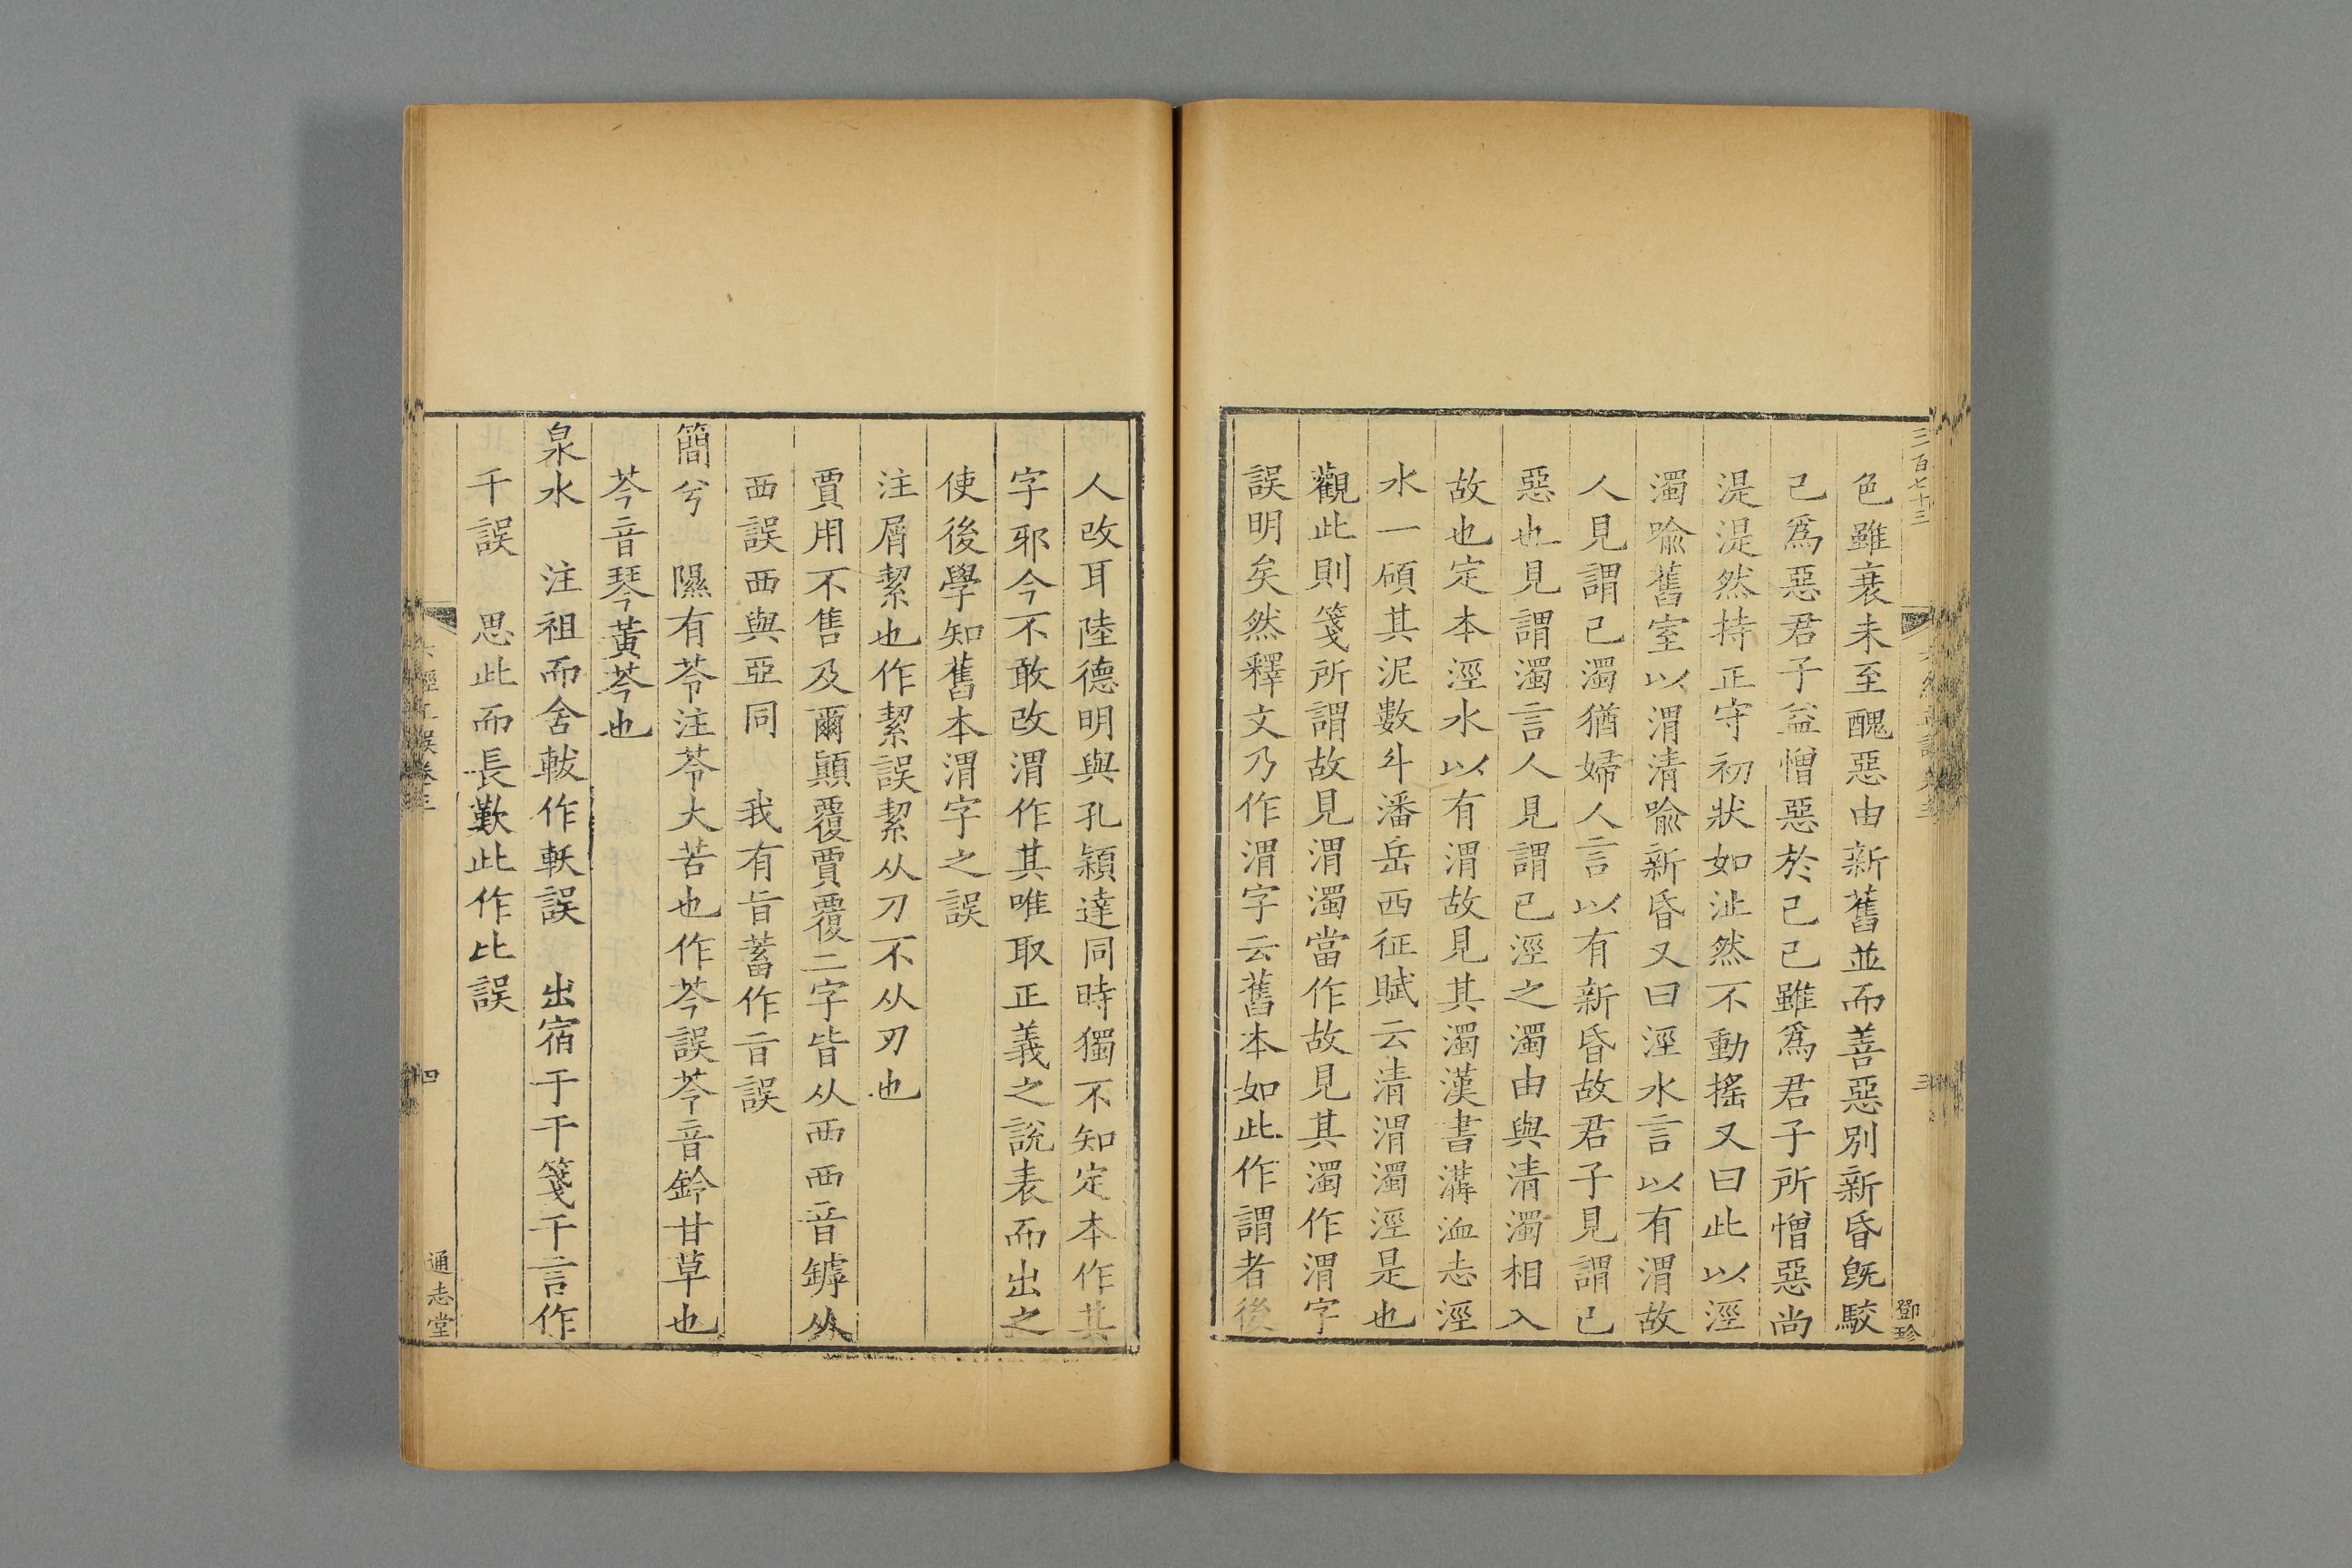 三百七十三
三
鄧珍
色雖衰未至醜惡由新舊並而善惡別新昏旣駮
己爲惡君子益憎惡於己己雖爲君子所憎惡尚
湜湜然持正守初狀如沚然不動搖又曰此以涇
濁喻舊室以渭清喻新昏又曰涇水言以有渭故
人見謂己濁猶婦人言以有新昏故君子見謂己
惡也見謂濁言人見謂己涇之濁由與清濁相入
故也定本涇水以有渭故見其濁漢書溝洫志涇
水一碩其泥數斗潘岳西征賦云清渭濁涇是也
觀此則箋所謂故見渭濁當作故見其濁作渭字
誤明矣然釋文乃作渭字云舊本如此作謂者後
人改耳陸德明與孔穎達同時獨不知定本作其
字邪今不敢改渭作其唯取正義之說表而出之
使後學知舊本渭字之誤
注屑絜也作潔誤絜从刀不从刃也
賈用不售及爾顛覆賈覆二字皆从襾襾音罅从
西誤襾與亞同　我有旨蓄作㫖誤
簡兮　隰有苓注苓大苦也作芩誤苓音鈴甘草也
芩音琴黃芩也
泉水　注祖而舍軷作軑誤　出宿于干箋干言作
千誤　思此而長歎此作比誤
六經正誤卷三
四
通志堂